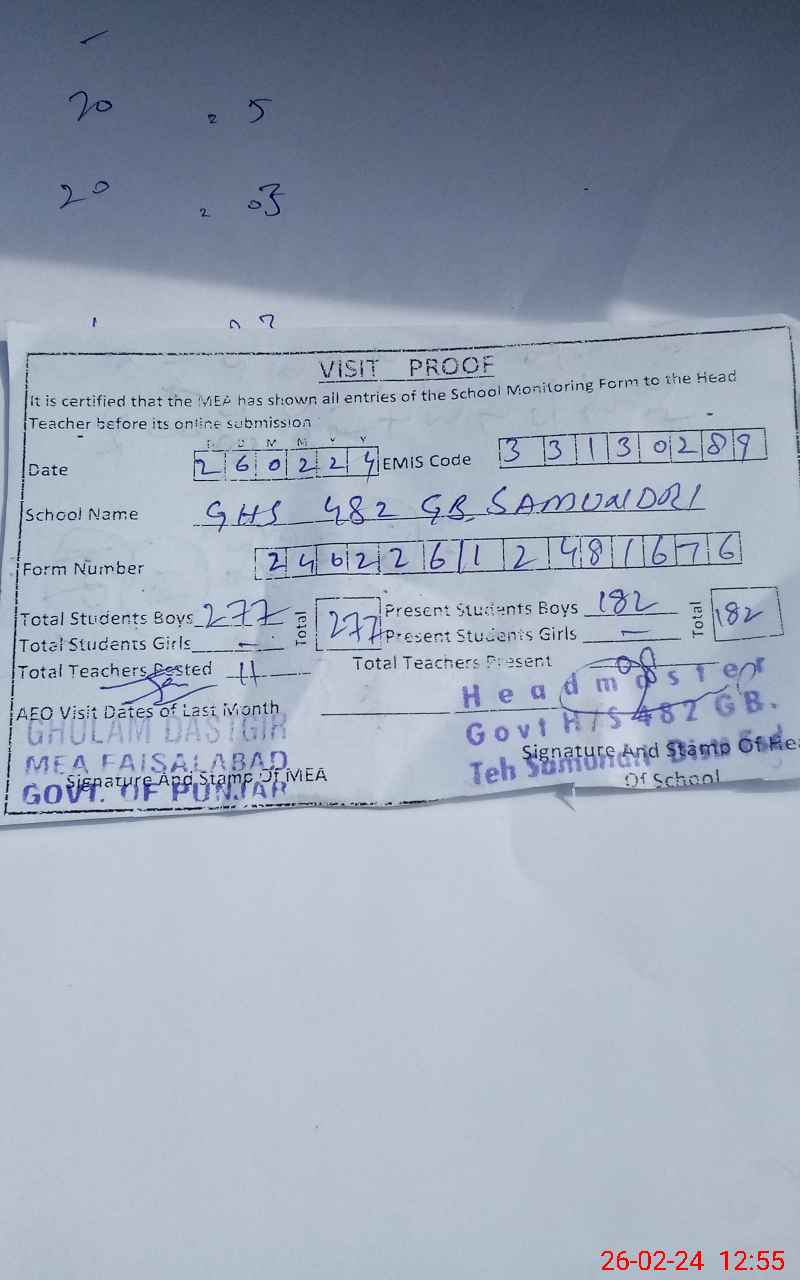 20 2 5
20 2 03
VISIT PROOF
It is certified that the MEA has shown all entries of the School Monitoring Form to the Head
Teacher before its online submission
D D M M Y Y
Date 260224 EMIS Code 33130289
School Name GHS 482 GB, SAMUNDRI
Form Number 24022612481676
Total Students Boys 277 Total 277 Present Students Boys 182 Total 182
Total Students Girls - Present Students Girls -
Total Teachers Posted 11 Total Teachers Present 08
AEO Visit Dates of Last Month
Headmaster
GHULAM DASTGIR Govt H/S 482 GB.
MEA FAISALABAD Signature And Stamp Of Hea
Signature And Stamp Of MEA Teh Samundri
GOVT. OF PUNJAB Of School
26-02-24 12:55